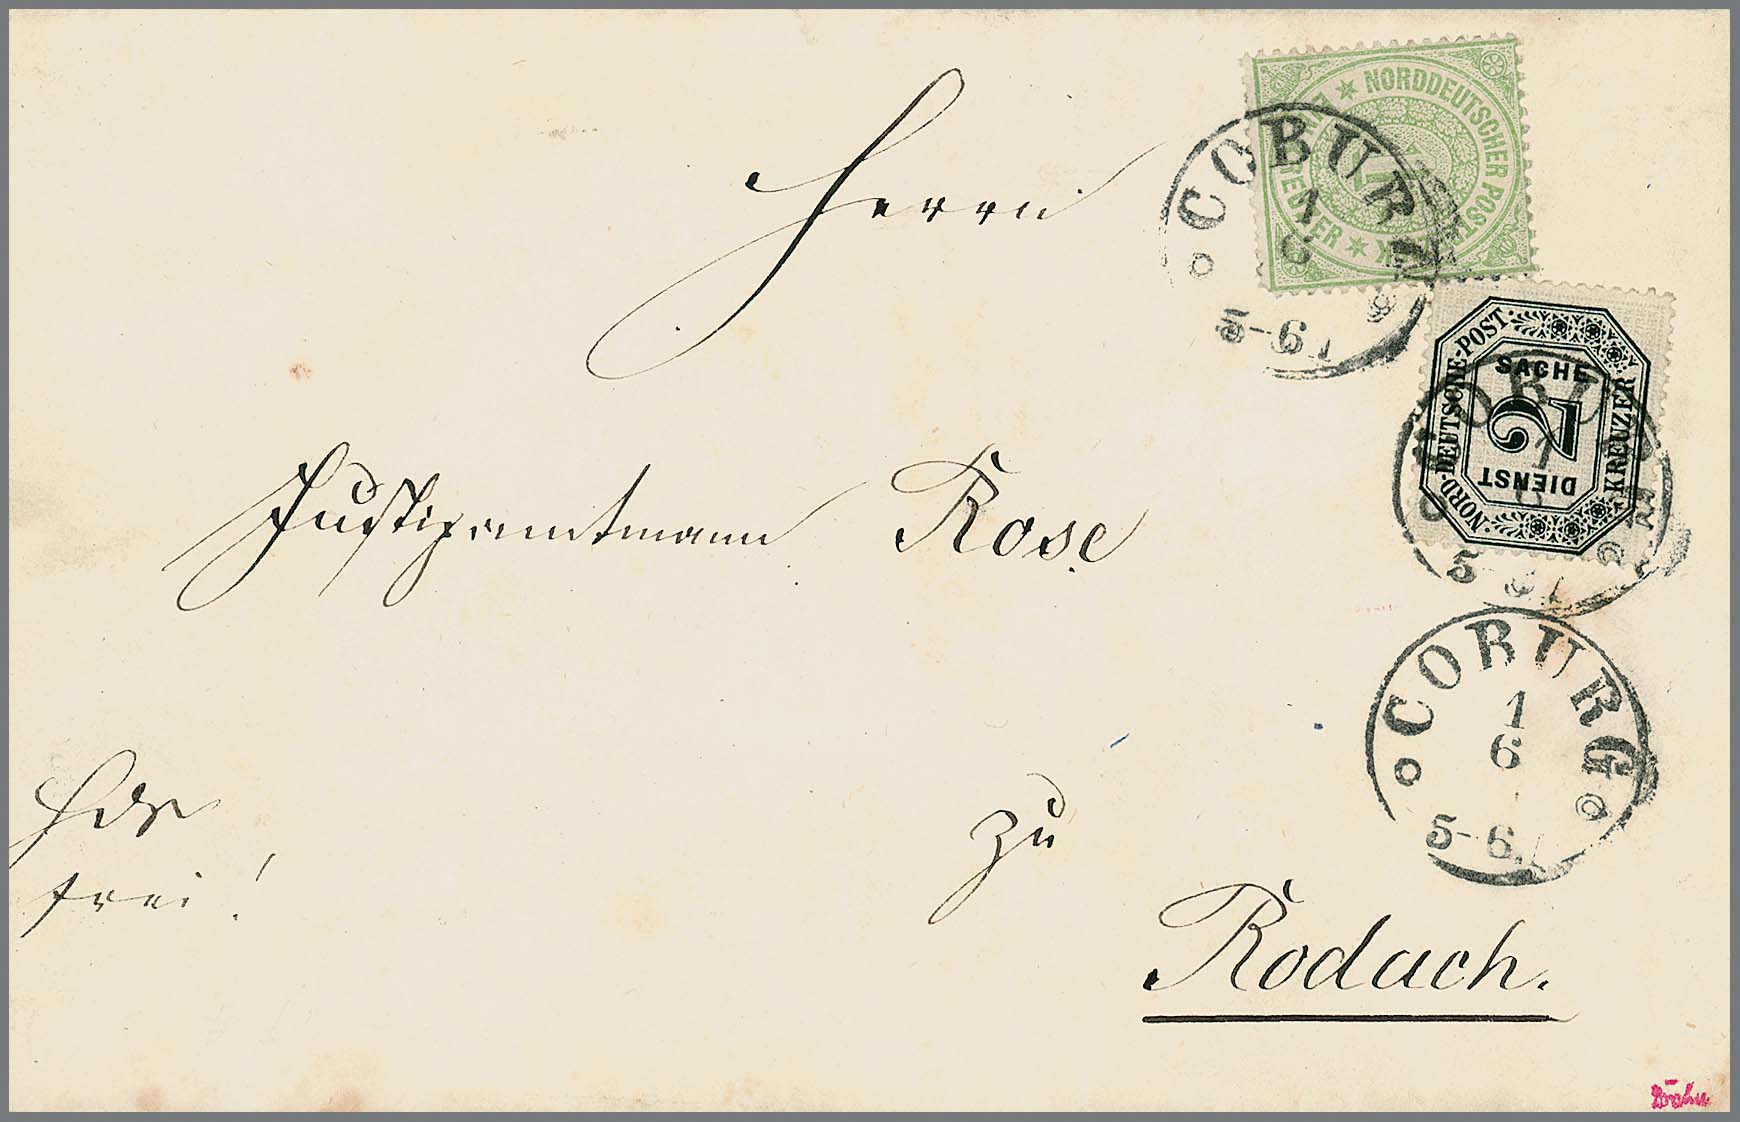 Herrn
Justizamtmann Rose
zu
Rodach.
frei!
NORDDEUTSCHER POSTBEZIRK
EIN KREUZER
1
COBURG
1
6
5-6
NORD-DEUTSCHE-POST
SACHE
2
DIENST
KREUZER
COBURG
1
6
5-6
COBURG
1
6
5-6